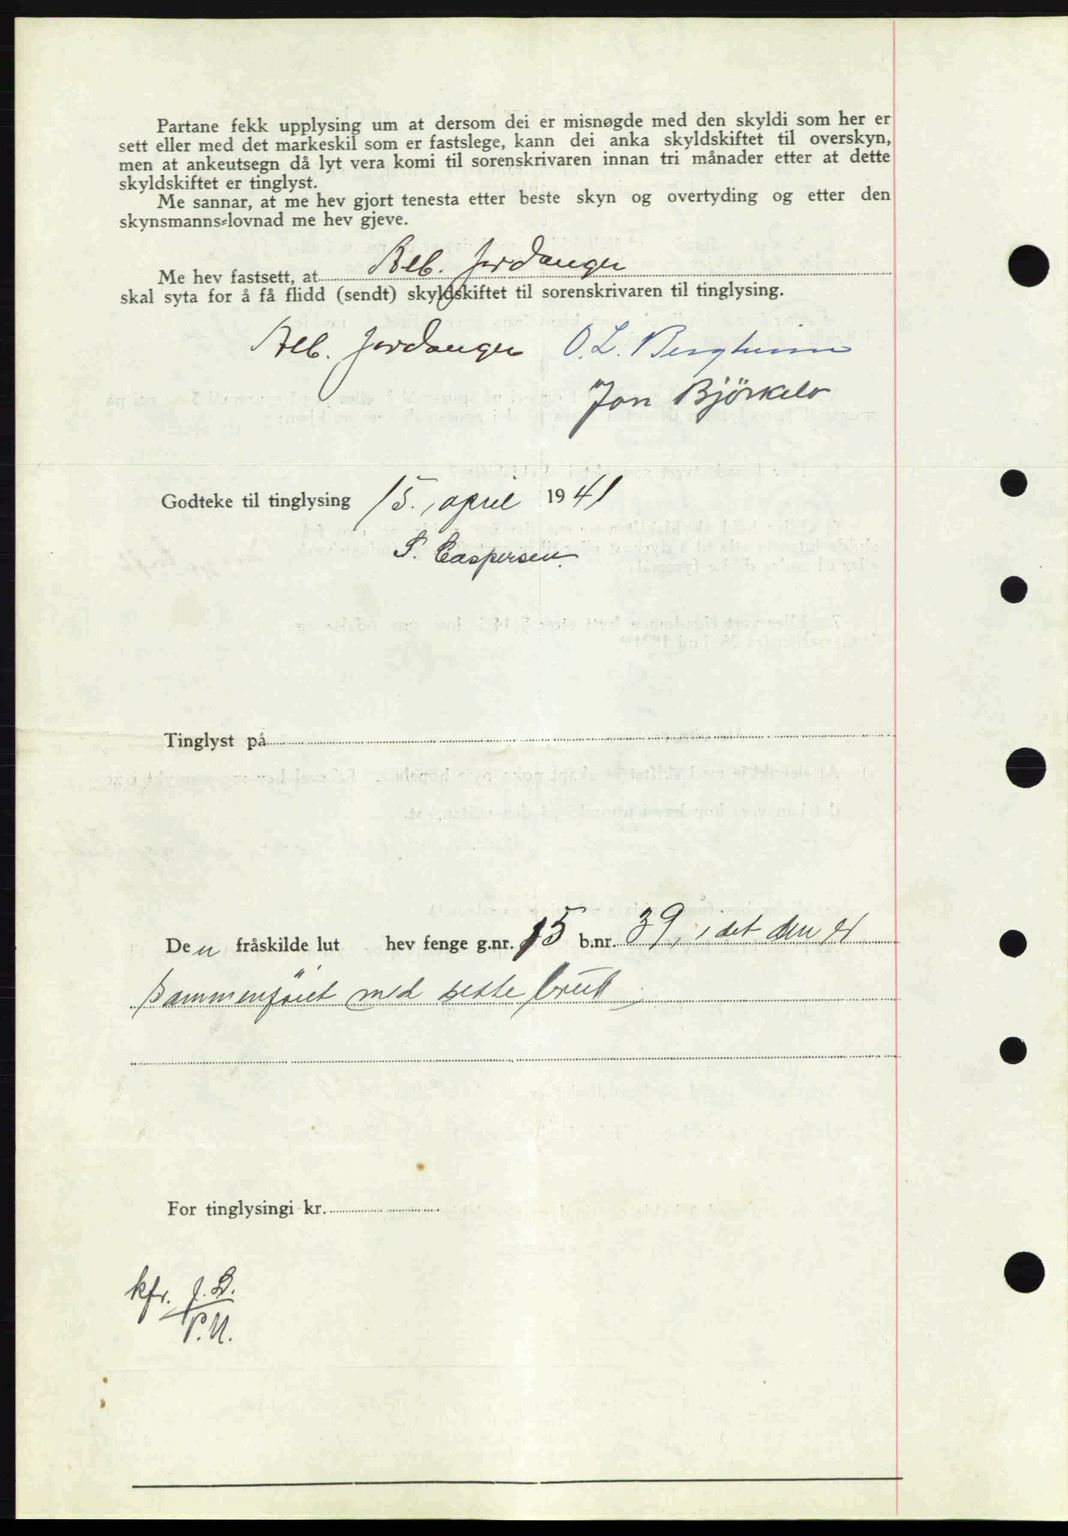 Partane fekk upplysing um at dersom dei er misnøgde med den skyldi som her er
sett eller med det markeskil som er fastslege, kann dei anka skyldskiftet til overskyn,
men at ankeutsegn då lyt vera komi til sorenskrivaren innan tri månader etter at dette
skyldskiftet er tinglyst.
Me sannar, at me hev gjort tenesta etter beste skyn og overtyding og etter den
skynsmanns-lovnad me hev gjeve.
Me hev fastsett, at Alb. Jordanger
skal syta for å få flidd (sendt) skyldskiftet til sorenskrivaren til tinglysing.
Alb. Jordanger O. L. Bergheim
Jon Björkelo
Godteke til tinglysing 15. april 1941
S. Caspersen.
Tinglyst på
Den fråskilde lut hev fenge g.nr. 15 b.nr. 39, i det den er
sammenføiet med dette bruk
For tinglysingi kr.
kfr. J.B.
P.N.